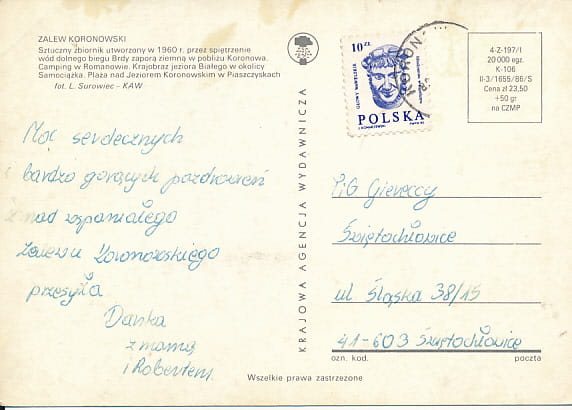 ZALEW KORONOWSKI
Sztuczny zbiornik utworzony w 1960 r. przez spiętrzenie
wód dolnego biegu Brdy zaporą ziemną w pobliżu Koronowa.
Camping w Romanowie. Krajobraz jeziora Białego w okolicy
Samociążka. Plaża nad Jeziorem Koronowskim w Piaszczyskach
fot. L. Surowiec - KAW
Moc serdecznych
i bardzo gorących pozdrowień
znad wspaniałego
Zalewu Koronowskiego
przesyła
Danka
z mamą
i Robertem.
KRAJOWA AGENCJA WYDAWNICZA
10 ZŁ
GŁOWY WAWELSKIE
POLSKA
KORONO
4-Z-197/I
20 000 egz.
K-106
II-3/1655/86/S
Cena zł 23,50
+50 gr
na CZMP
PiG Gierełccy
Świętochłowice
ul Śląska 38/15
41-603 Świętochłowice
ozn. kod.
poczta
Wszelkie prawa zastrzeżone